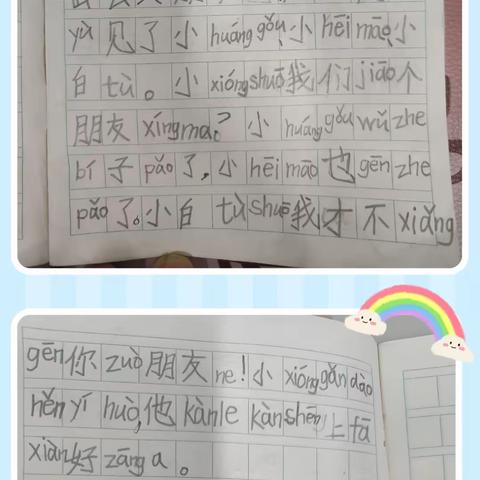 yù见了小huánggǒu,小hēimāo,小
白tù。小xióngshuō我们jiāo个
朋友xíngma?小huánggǒuwǔzhe
bí子pǎo了,小hēimāo也gēnzhe
pǎo了。小白tùshuō我才不xiǎng
gēn你zuò朋友ne!小xiónggǎndào
hěnyíhuò,他kànlekànshēn上fā
xiàn好zānga。